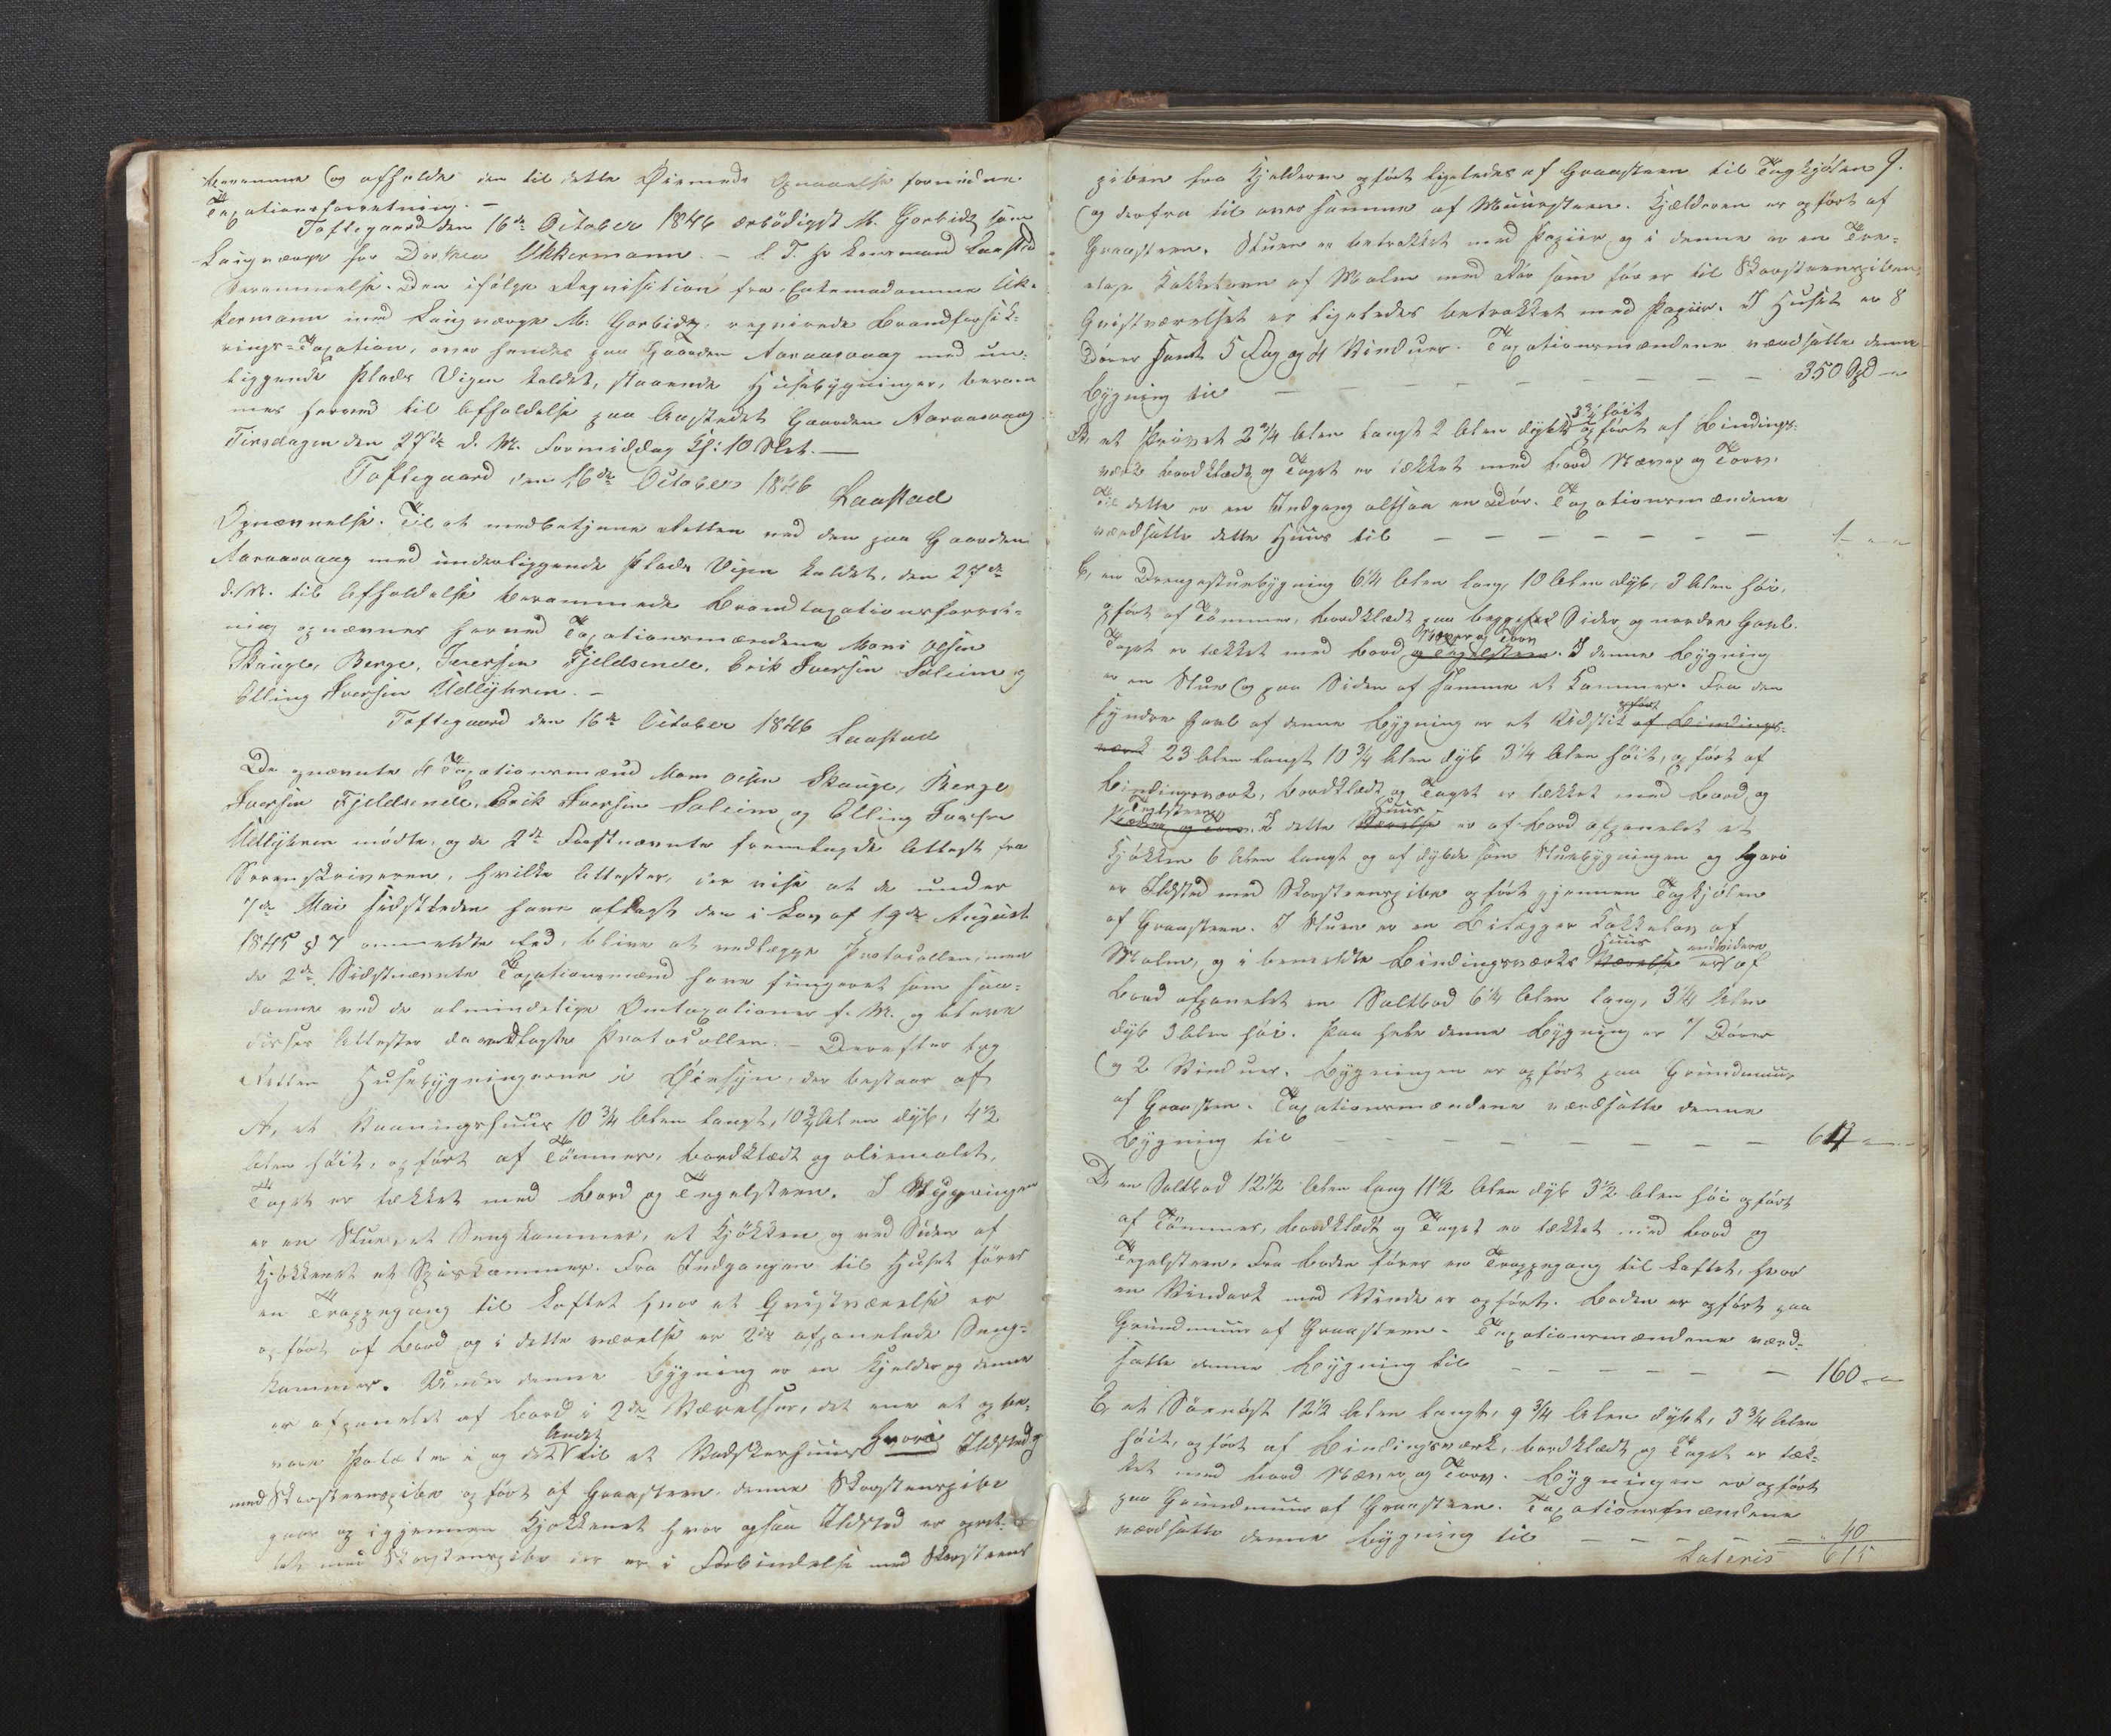 beramme og afholde den til dette Øiemeds Opnaaelse fornødne
Taxationsforretning. –
Toftegaard den 16de October 1846 ærbödigst M. Gorbitz som
Laugværge for Dorthea Ukkermann. – S. T. Hr Lensmand Laastad
Berammelse. Den ifölge Reqvisition fra Enkemadamme Uk-
kermann med Laugværge M: Gorbitz, reqvirede Brandforsik-
rings-Taxation, over hendes paa Gaarden Aaraasvaag med un-
liggende Plads Vigen kaldet, staaende Husebygninger, beram
mes herved til Afholdelse paa Aastedet Gaarden Aaraasvaag
Tirsdagen den 27de d. M. Formiddag Kl: 10 Slet. –
Toftegaard den 16de October 1846 Laastad
Opnævnelse. Til at medbetjene Retten ved den paa Gaarden
Aaraasvaag med underliggende Plads Vigen kaldet, den 27de
d. M. til Afholdelse berammede Brandtaxationsforret-
ning opnævnes herved Taxationsmændene Mons Olsen
Skauge, Berge Iversen Fjeldsende, Erik Iversen Soleim og
Elling Iversen Udlyhren. –
Toftegaard den 16de October 1846 Laastad
De opnævnte 4 Taxationsmænd Mons Olsen Skauge, Berge
Iversen Fjeldsende, Erik Iversen Soleim og Elling Iversen
Udlyhren mødte, og de 2de Førstnævnte fremlagde Attest fra
Sorenskriveren, hvilke Attester, der vise at de under
7de Mai sidstleden have aflagt den i Lov af 19de August
1845 § 7 anmeldte Eed, blive at vedlægge Protocollen, men
de 2de Sidstnævnte Taxationsmænd have fungeret som saa-
danne ved de almindelige Omtaxationer f. M. og bleve
disses Attester da vedlagte Protocollen. – Derefter tog
Retten Husebygningerne i Øiesyn, der bestaar af
A, et Vaaningshuus 10 3/4 Alen langt, 10 3/4 Alen dyb, 4 1/2
Alen höit, opfört af Tömmer, bordklædt og oliemalet,
Taget er tækket med Bord og Tegelsteen. I Bygningen
er en Stue, et Sengkammer, et Kjökken og ved Siden af
Kjökkenet et Spiskammer. Fra Indgangen til Huset föres
en Trappegang til Loftet hvor et Qvistværelse er
opfört af Bord og i dette værelse er 2de afpanelede Seng-
kammer. Under denne Bygning er en Kjelder og denne
er afpanelet af Bord i 2de Værelser, det ene at opbe-
vare Poteter i og det Andet til et Vadskerhuus hvori Ildsted og
med Skorsteenspibe opfört af Graasteen, denne Skorsteenspibe
gaar op igjennem Kjökkenet hvor ogsaa Ildsted er opret-
tet med Skorsteenspibe der er i Forbindelse med Skorsteens
9.
piben fra Kjelderen opfört ligeledes af Graasteen til Tagkjölen
og derfra til over samme af Muursteen. Kjælderen er opfört af
Graasteen. Stuen er betrækket med Papiir og i denne er en Tre-
etage Kakkelovn af Malm med Rör som förer til Skorsteenspiben,
Qvistværelset er ligeledes betrækket med Papiir. I Huset er 8
Dörer samt 5 Fag og 4 Vinduer. Taxationsmændene værdsatte denne
Bygning til – – – – – – – 350 Spd „ „
B, et Privet 2 3/4 Alen langt 2 Alen dybt 3 3/4 höit opfört af Bindings-
værk bordklædt og Taget er tækket med Bord Næver og Torv.
Til dette er en Indgang altsaa en Dör. Taxationsmændene
værdsatte dette Huus til – – – – – – – 1 „ „
C, en Drengestuebygning 6 1/4 Alen lang, 10 Alen dyb, 3 Alen höi,
opfört af Tömmer, bordklædt paa begge Sider og nordre Gavl.
Taget er tækket med Bord og Tegelsteen Næver og Torv. I denne Bygning
er en Stue og paa Siden af samme et Kammer. Fra den
syndre Gavl af denne Bygning er et Udskit opfört af Bindings-
værk 23 Alen langt 10 3/4 Alen dyb 3 1/4 Alen höit, opfört af
Bindingsværk, bordklædt og Taget er tækket med Bord og
Næver og Torv Teglsteen. I dette Værelse Huus er af Bord afpanelet et
Kjökken 6 Alen langt og af dybde som Stuebygningen og hvori
er Ildsted med Skorsteenspibe opfört gjennem Tagkjölen
af Graasteen. I Stuen er en Bilægger Kakkelovn af
Malm, og i benævnte Bindingsværks Værelse Huus er endvidere af
Bord afpanelet en Saltbod 6 1/4 Alen lang, 3 1/4 Alen
dyb 3 Alen höi. Paa hele denne Bygning er 7 Dörer
og 2 Vinduer. Bygningen er opfört paa Grundmuur
af Graasteen. Taxationsmændene værdsatte denne
Bygning til – – – – – – – 64 „ „
D, en Saltbod 12 1/2 Alen lang 11 1/2 Alen dyb 3 1/2 Alen höi opfört
af Tömmer, bordklædt og Taget er tækket med Bord og
Tegelsteen. Fra Boden förer en Trappegang til Loftet, hvor
en Vindark med Vinde er opfört. Boden er opfört paa
Grundmuur af Graasteen. Taxationsmændene værd-
satte denne Bygning til – – – – – 160 „ „
E, et Sönnöst 12 1/2 Alen langt, 9 3/4 Alen dybt, 3 3/4 Alen
höit, opfört af Bindingsværk, bordklædt og Taget er tæk-
ket med Bord Næver og Torv. Bygningen er opfört
paa Grundmuur af Graasteen. Taxationsmændene
værdsatte denne Bygning til – – – – – 40
Lateris 615